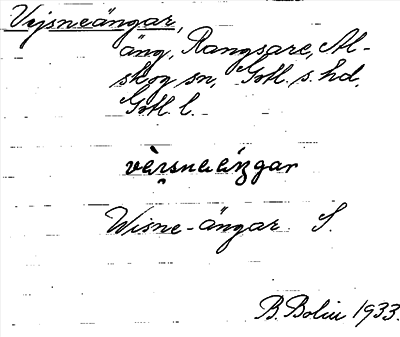 Vejsneängar,
äng, Rangsare, Al-
skog sn, Gotl. s. hd,
Gotl. l.
Wisne-ängar S.
B. Bolin 1933.